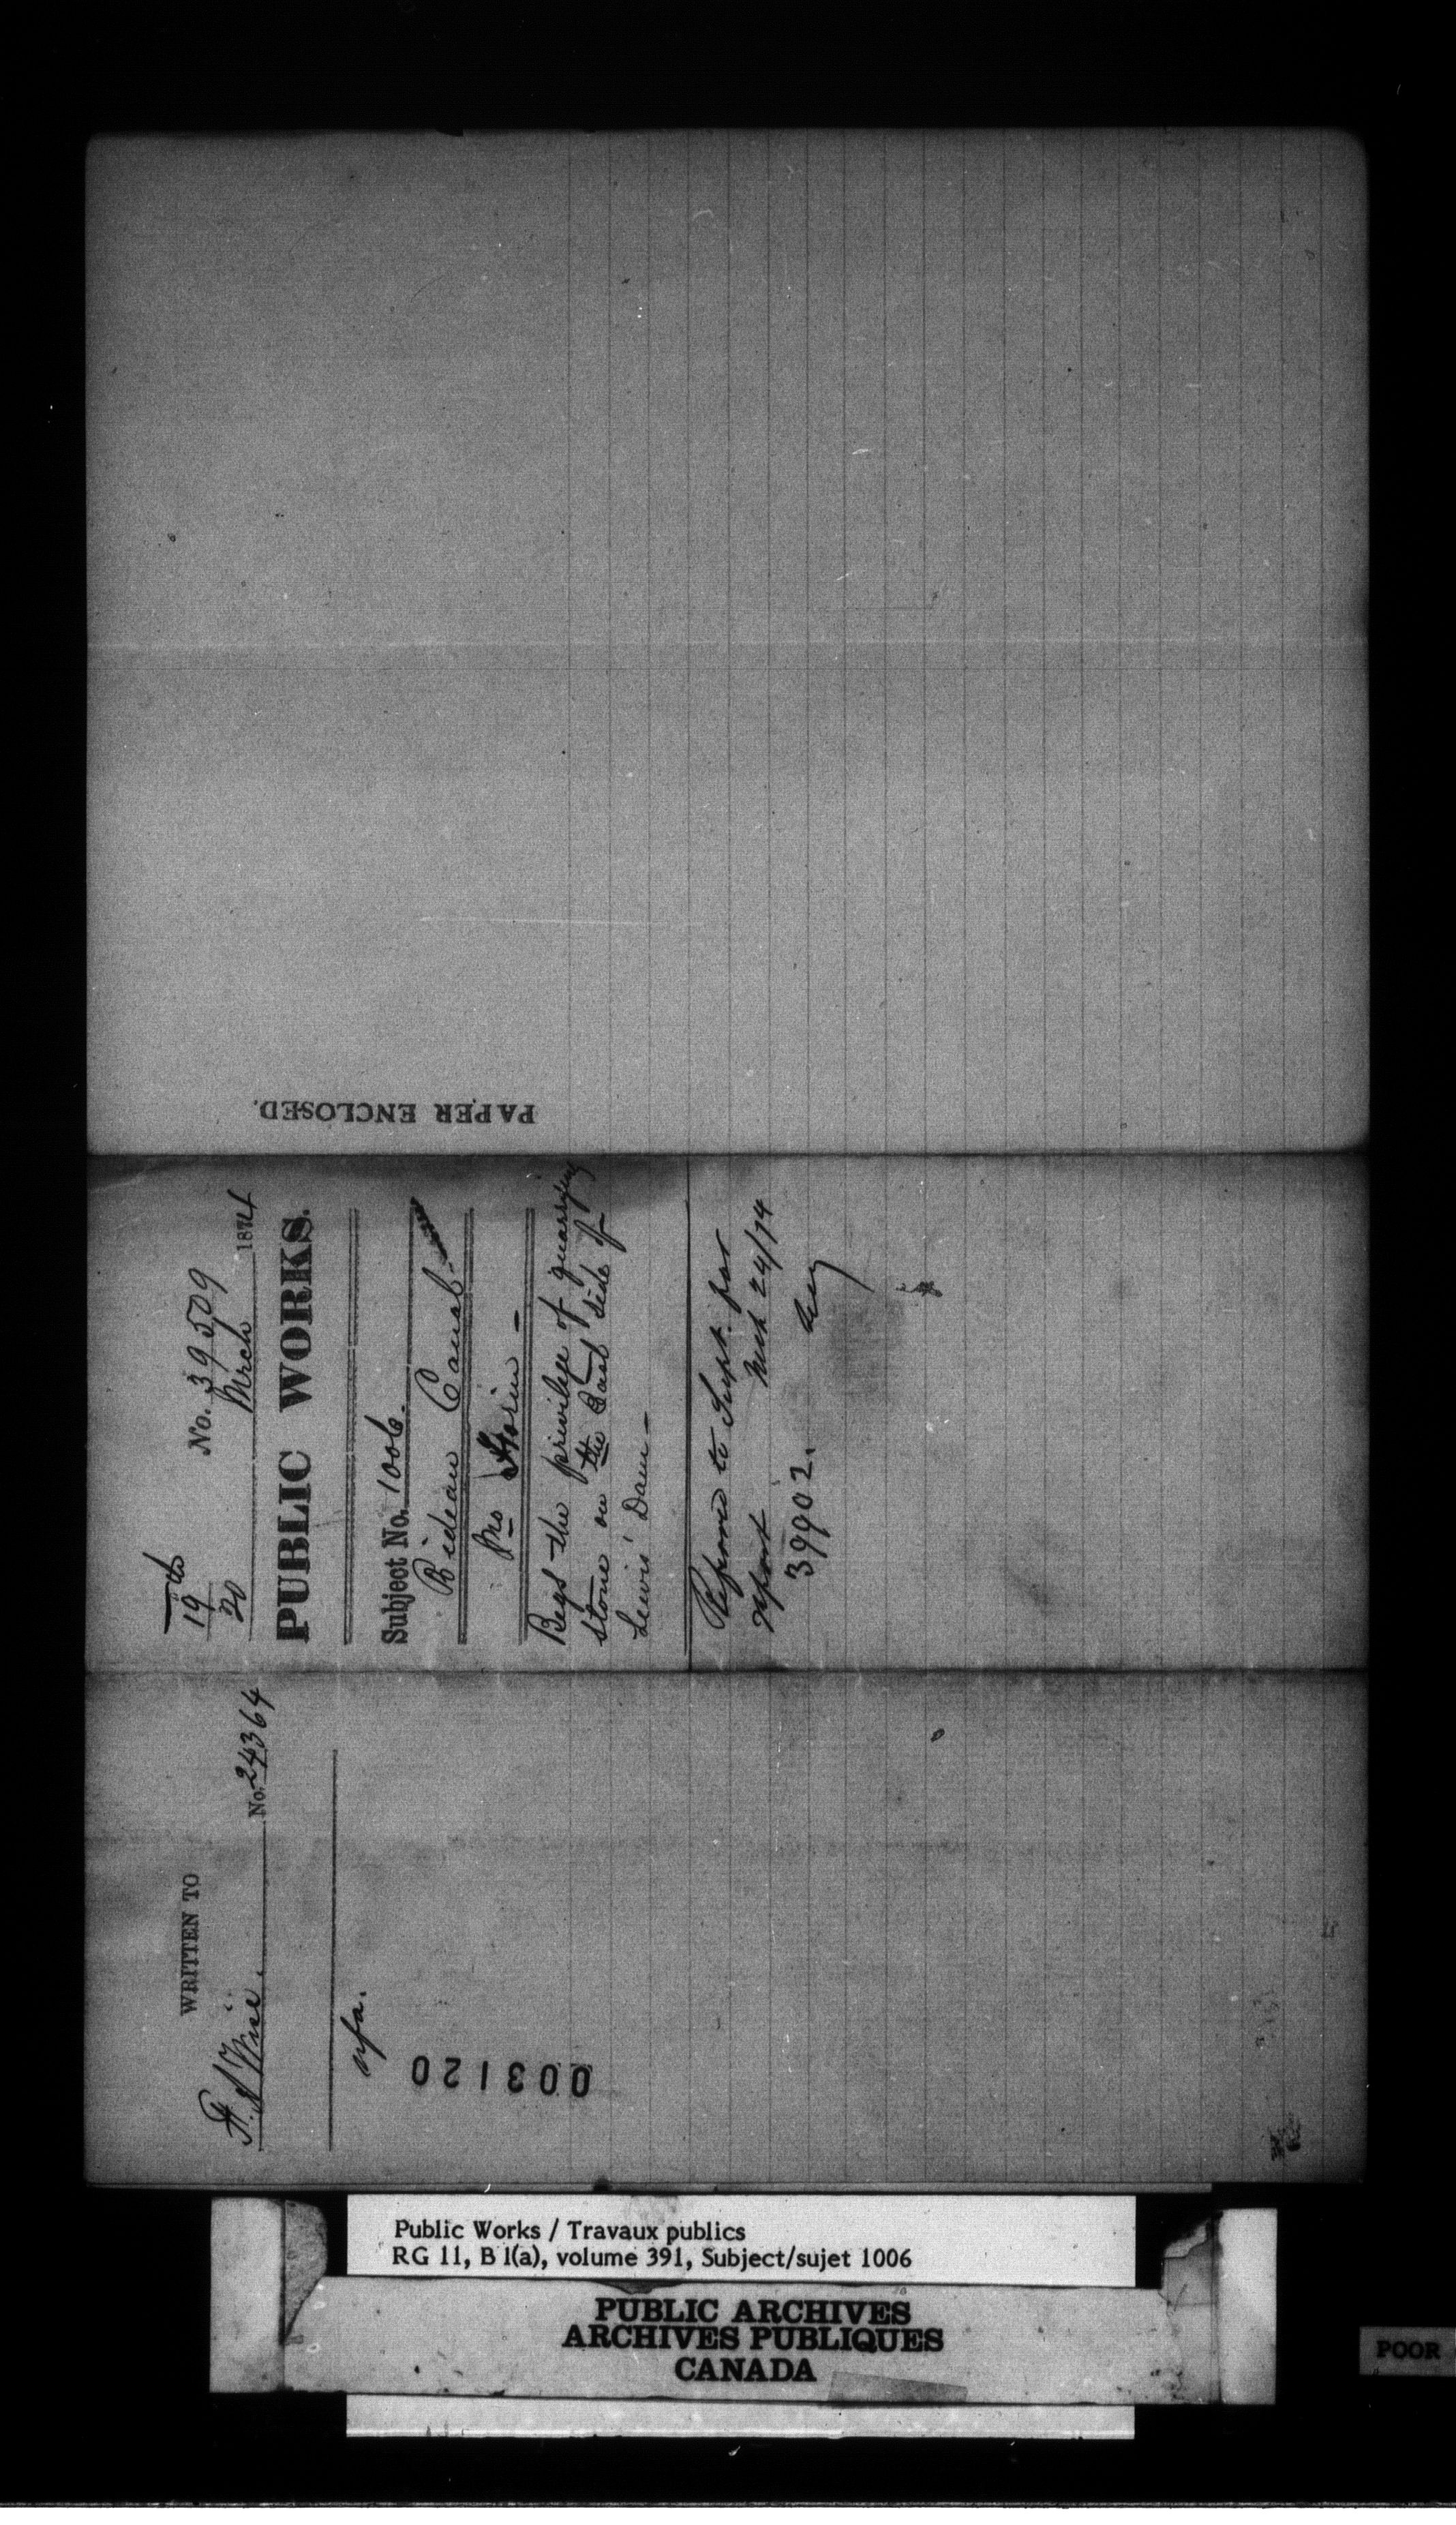 PAPER ENCLOSED.
19
20
No. 39509
March 1874
PUBLIC WORKS.
Subject No. 1006.
Rideau Canal
Begs the privilege of quarrying
stone on the East side of
Lewis' Dam
to Supt. for
report Mch 24/74
39902.
WRITTEN TO
F. A. Wise. No. 24364
nfa.
003120
Public Works / Travaux publics
RG 11, B 1(a), volume 391, Subject/sujet 1006
PUBLIC ARCHIVES
ARCHIVES PUBLIQUES
CANADA
POOR